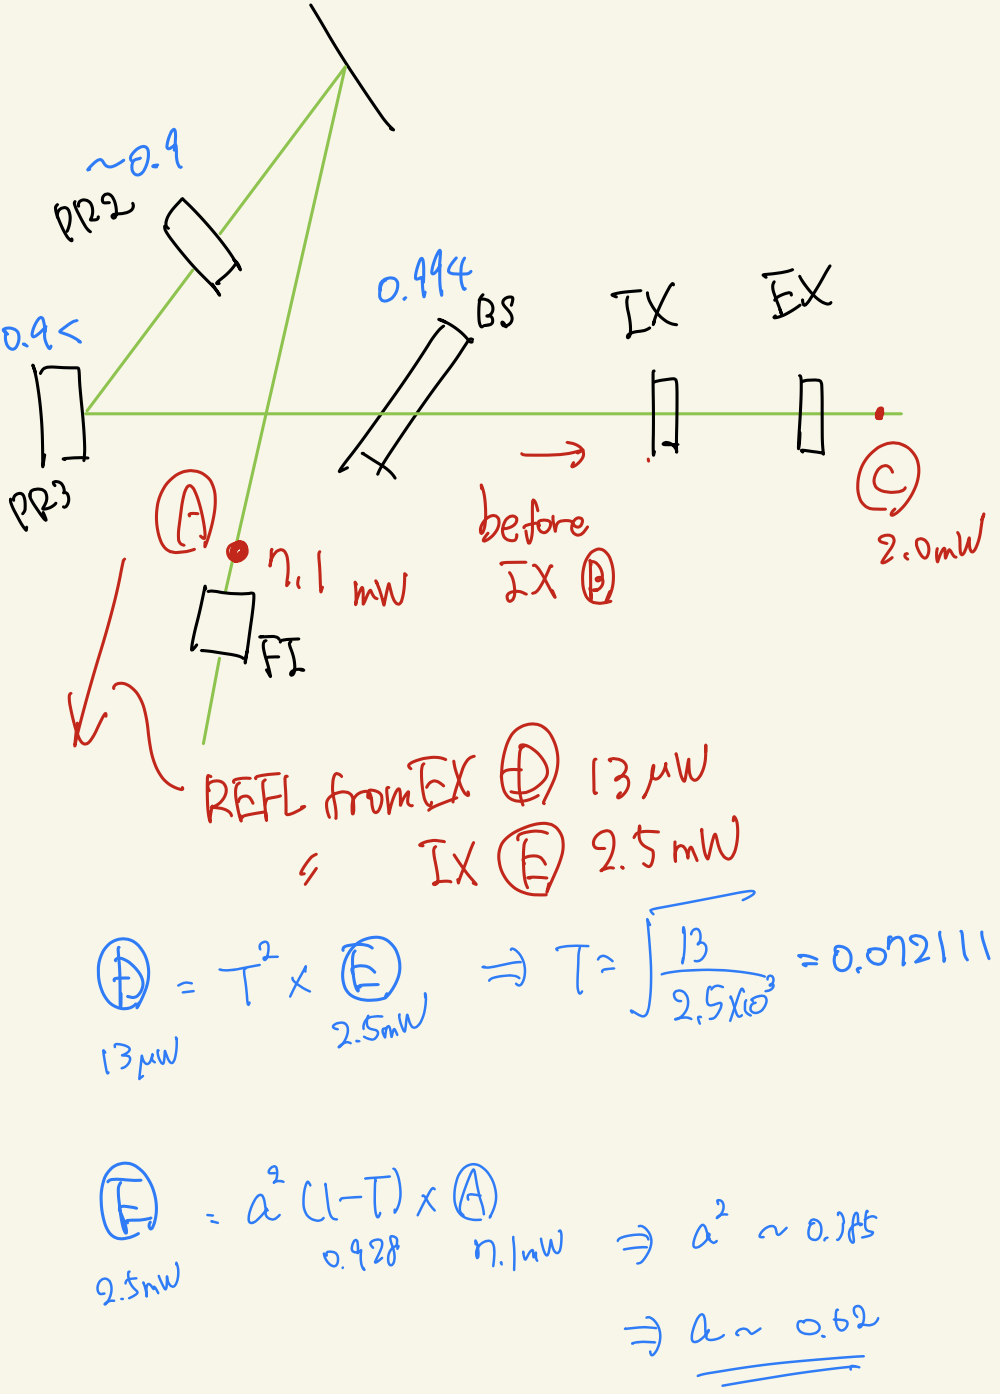 ~0.9
PR2
0.994
BS
IX
EX
0.9<
PR3
A
7.1 mW
FI
before
IX B
C
2.0mW
REFL from EX D 13 μW
〃 IX E 2.5 mW
D = T² × E ⇒ T = √(13 / 2.5×10³) = 0.072111
13 μW 2.5mW
E = a² (1-T) × A ⇒ a² ~ 0.385
2.5mW 0.928 7.1mW
⇒ a ~ 0.62